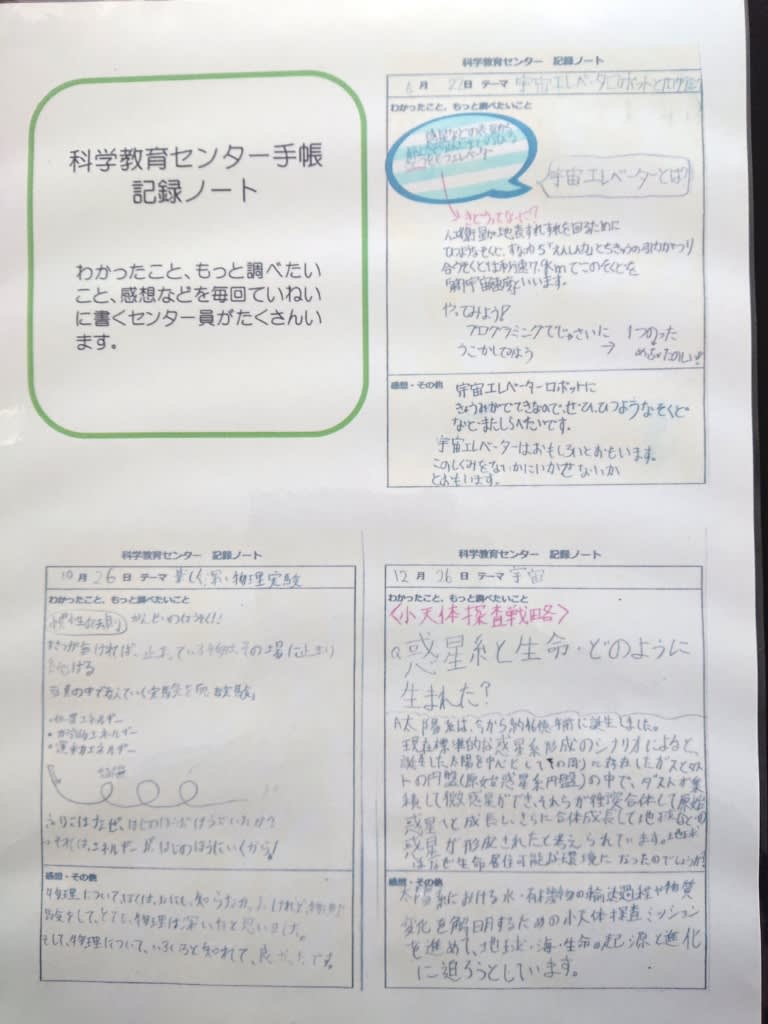 科学教育センター手帳
記録ノート
わかったこと、もっと調べたい
こと、感想などを毎回ていねい
に書くセンター員がたくさんい
ます。
科学教育センター 記録ノート
6月 22日 テーマ 宇宙エレベーターロボットと
わかったこと、もっと調べたいこと
宇宙エレベーターとは?
人工衛星が地表すれすれを回るために
ひつようなそくど、すなわち「えんしん力」とちきゅうの引力がつり
合うそくどは秒速7.9kmでこのそくどを
第1宇宙速度といいます。
やってみよう!
プログラミングでじゅさいに
うごかしてみよう
→
めちゃたのしい!
感想・その他
宇宙エレベーターロボットに
きょうみがでてきたので、ぜひ、ひつようなそくど
などまたしらべたいです。
宇宙エレベーターはおもしろいとおもいます。
このしくみをないかにいかせないか
とおもいます。
科学教育センター 記録ノート
10月 26日 テーマ 楽しく深い物理実験
わかったこと、もっと調べたいこと
慣性の法則 かんせいのほうそく!!
力が無ければ、止まっている物は、その場に止まり
続ける
・位置エネルギー
・運動エネルギー
ふりこはなぜ、はじめのほうだけうごいたか?
それは、エネルギーが、はじめのほうにいくから!
感想・その他
物理は、深いなと思いました。
そして、物理について、いろいろと知れて、良かったです。
科学教育センター 記録ノート
12月 26日 テーマ 宇宙
わかったこと、もっと調べたいこと
〈小天体探査戦略〉
Q惑星系と生命・どのように
生まれた?
A太陽系は、今から約46億年前に誕生しました。
現在標準的な惑星系形成のシナリオによると、
誕生した太陽を中心としてその周りに存在したガスとダス
トの円盤(原始惑星系円盤)の中で、ダストが集
積して微惑星ができ、それらが衝突合体して原始
惑星へと成長し、さらに合体成長して地球などの
惑星が形成されたと考えられています。地球
はなぜ生命居住可能な環境になったのでしょうか?
感想・その他
太陽系における水・有機物の輸送過程や物質
変化を解明するための小天体探査ミッション
を進めて、地球・海・生命の起源と進化
に迫ろうとしています。